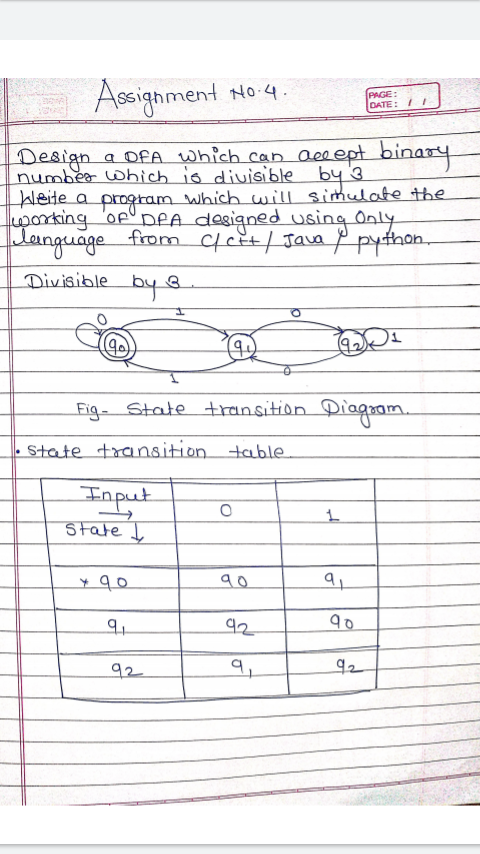 Assignment No.4.
PAGE:
DATE: / /
Design a DFA which can accept binary
number which is divisible by 3
Write a program which will simulate the
working of DFA designed using Only
language from C/C++/Java/python.
Divisible by 3.
0 1 0
q0 q1 q2 1
1 0
Fig- State transition Diagram.
• State transition table.
Input → 0 1
State ↓
* q0 q0 q1
q1 q2 q0
q2 q1 q2